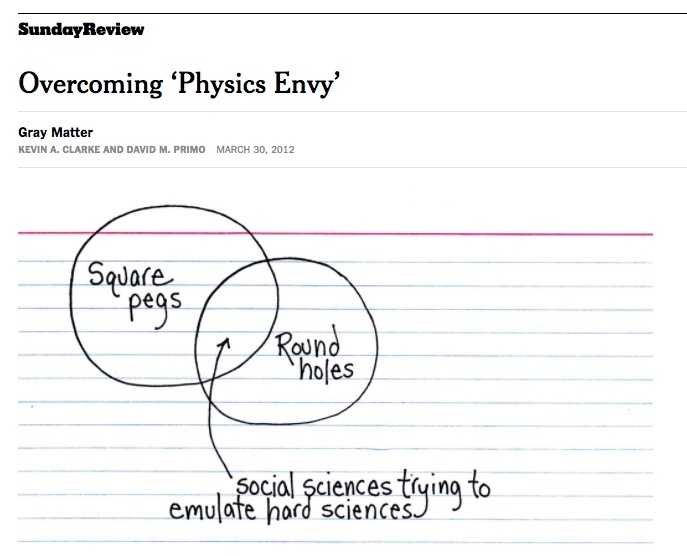 SundayReview
Overcoming ‘Physics Envy’
Gray Matter
KEVIN A. CLARKE AND DAVID M. PRIMO MARCH 30, 2012
Square
pegs
Round
holes
social sciences trying to
emulate hard sciences